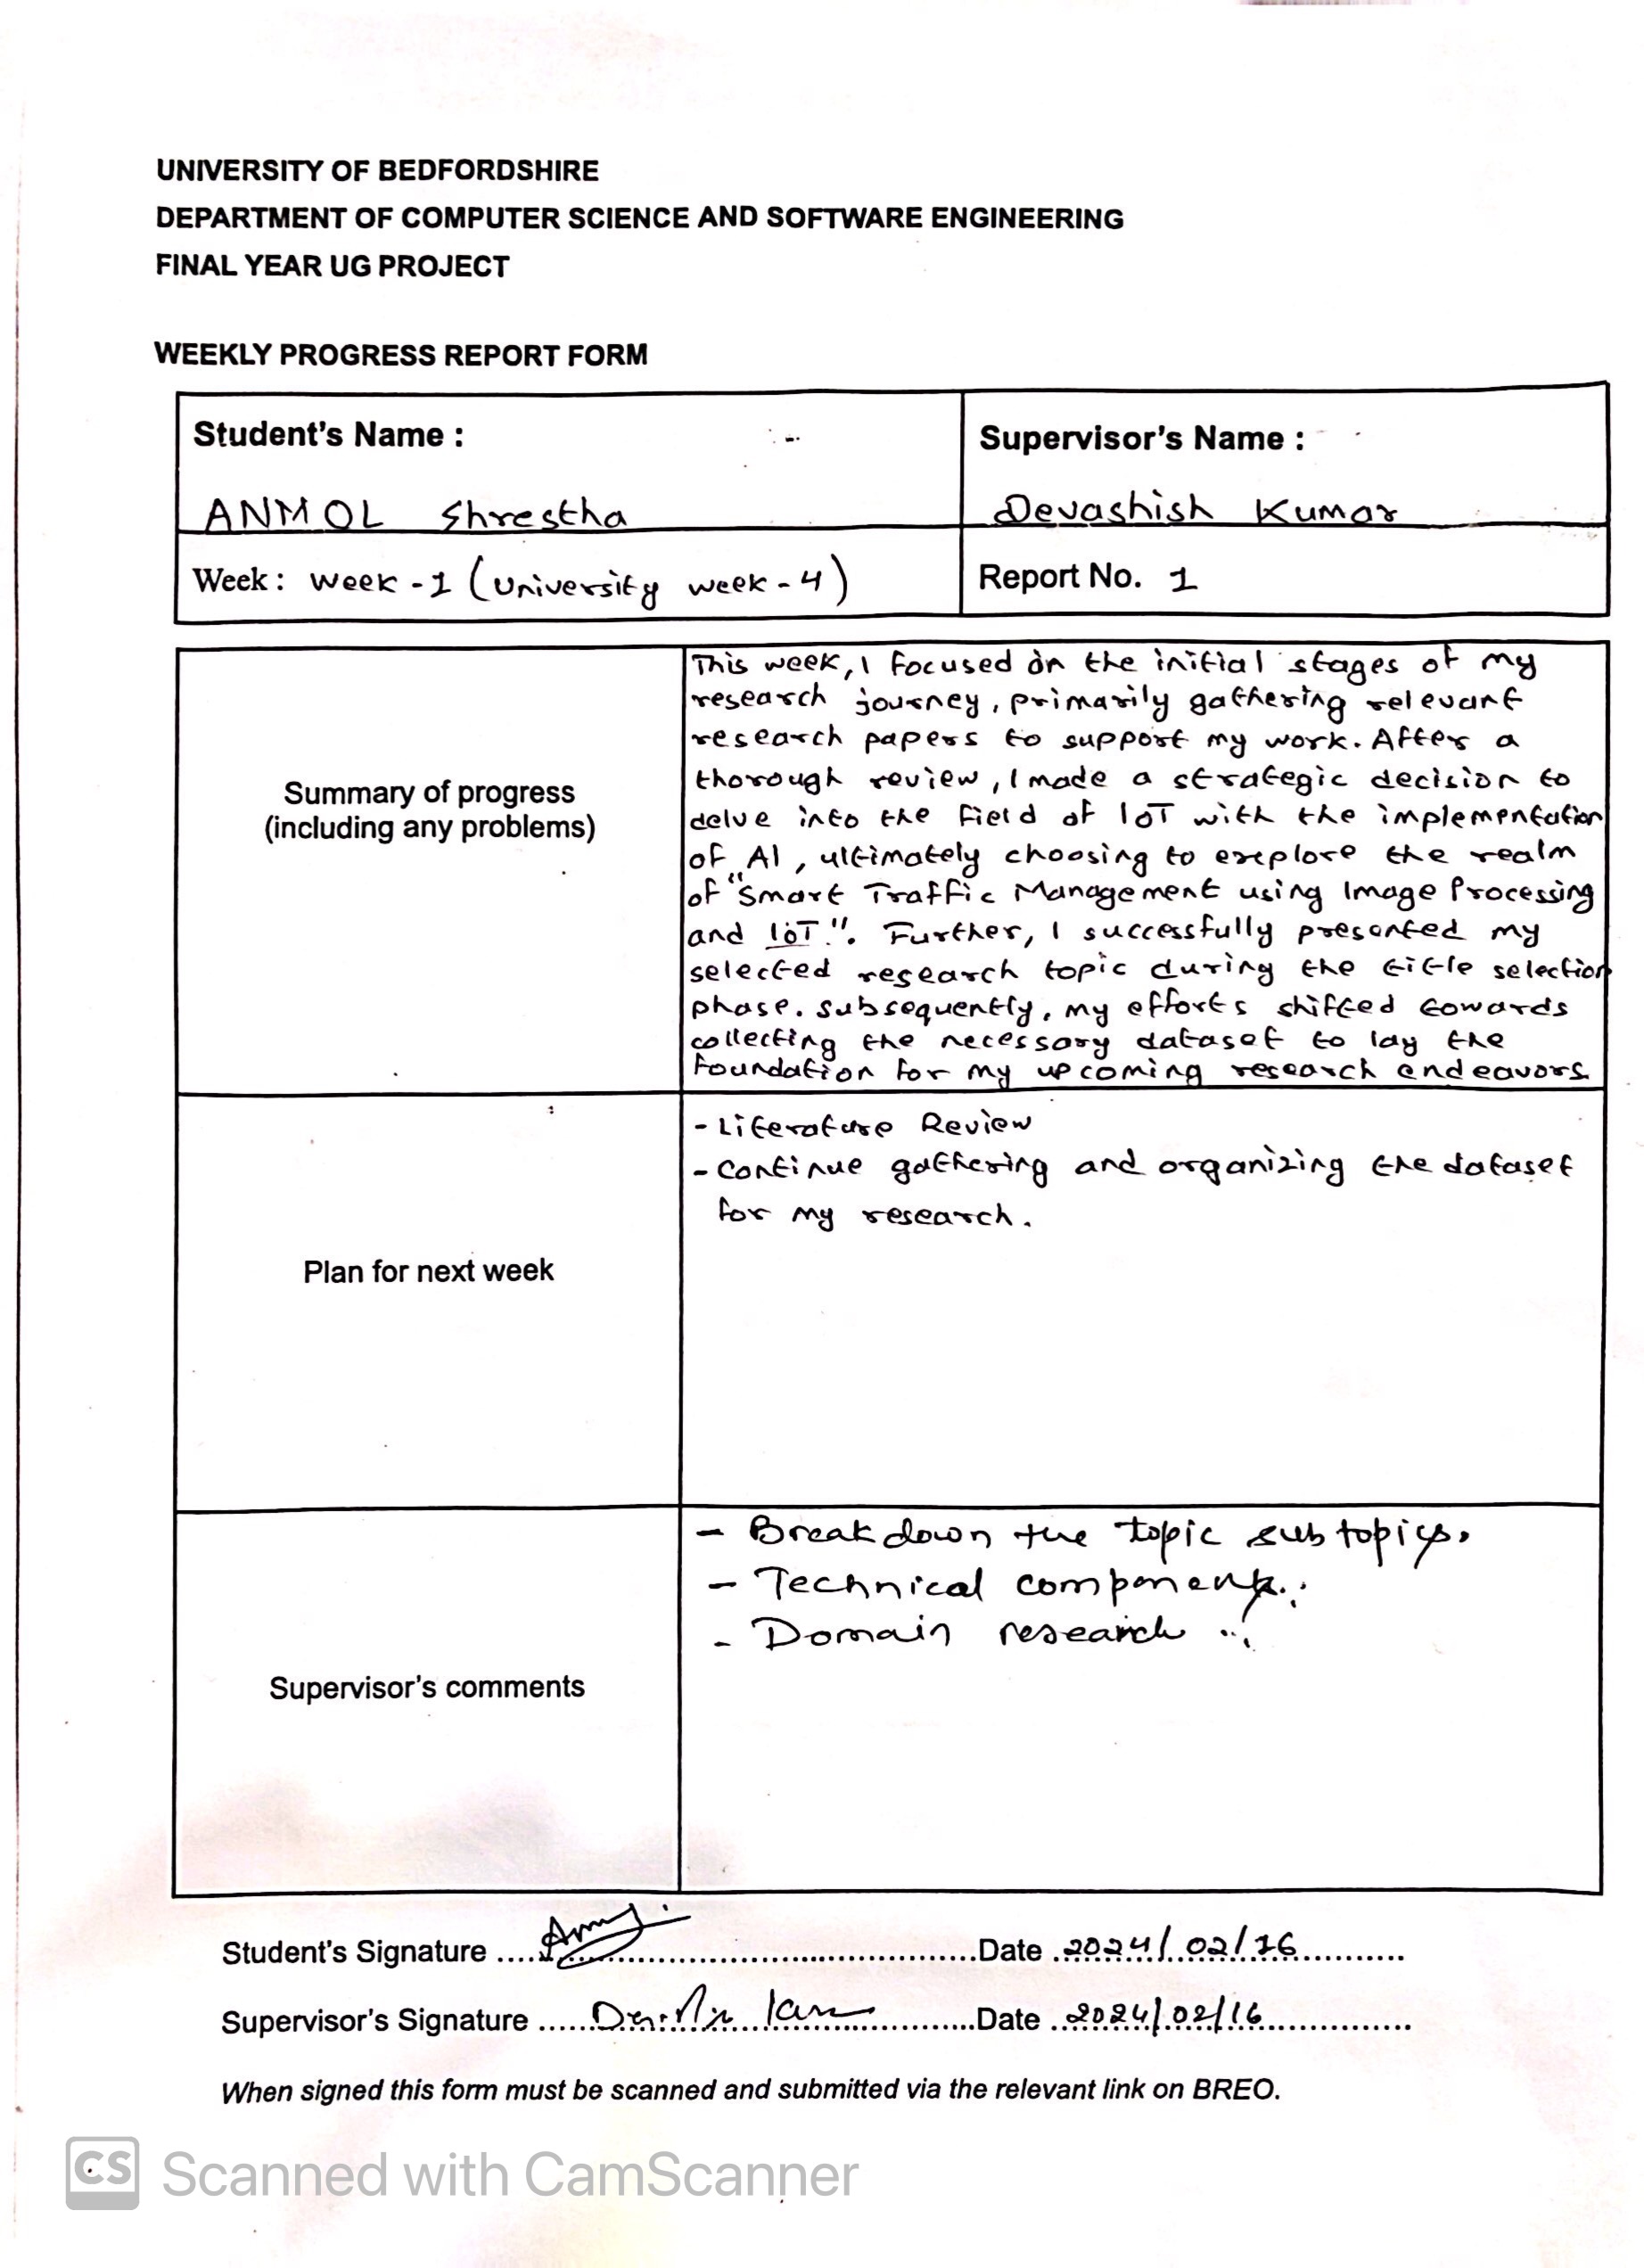 UNIVERSITY OF BEDFORDSHIRE
DEPARTMENT OF COMPUTER SCIENCE AND SOFTWARE ENGINEERING
FINAL YEAR UG PROJECT
WEEKLY PROGRESS REPORT FORM
Student's Name :
ANMOL Shrestha
Supervisor's Name :
Devashish Kumar
Week : Week - 1 (University week - 4)
Report No. 1
Summary of progress
(including any problems)
This week, I focused on the initial stages of my
research journey, primarily gathering relevant
research papers to support my work. After a
thorough review, I made a strategic decision to
delve into the field of IoT with the implementation
of AI, ultimately choosing to explore the realm
of "Smart Traffic Management using Image Processing
and IoT". Further, I successfully presented my
selected research topic during the title selection
phase. Subsequently, my efforts shifted towards
collecting the necessary dataset to lay the
foundation for my upcoming research endeavors
Plan for next week
- Literature Review
- Continue gathering and organizing the dataset
for my research.
Supervisor's comments
- Breakdown the topic subtopics.
- Technical components.
- Domain research
Student's Signature ........ Date 2024/02/16
Supervisor's Signature ........ Date 2024/02/16
When signed this form must be scanned and submitted via the relevant link on BREO.
CS Scanned with CamScanner